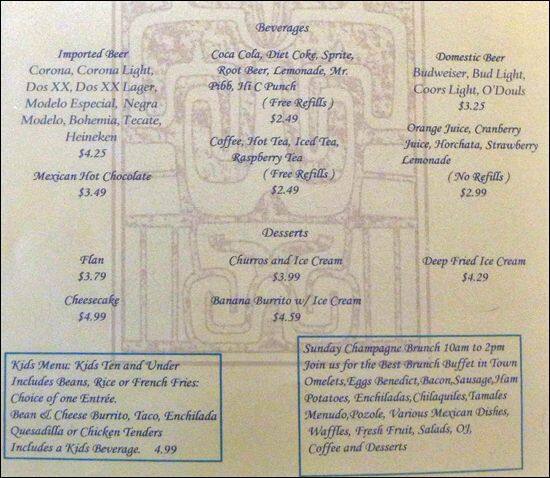 Beverages
Imported Beer
Corona, Corona Light,
Dos XX, Dos XX Lager,
Modelo Especial, Negra
Modelo, Bohemia, Tecate,
Heineken
$4.25
Mexican Hot Chocolate
$3.49
Coca Cola, Diet Coke, Sprite,
Root Beer, Lemonade, Mr.
Pibb, Hi C Punch
( Free Refills )
$2.49
Coffee, Hot Tea, Iced Tea,
Raspberry Tea
( Free Refills )
$2.49
Domestic Beer
Budweiser, Bud Light,
Coors Light, O'Douls
$3.25
Orange Juice, Cranberry
Juice, Horchata, Strawberry
Lemonade
( No Refills )
$2.99
Desserts
Flan
$3.79
Churros and Ice Cream
$3.99
Deep Fried Ice Cream
$4.29
Cheesecake
$4.99
Banana Burrito w/ Ice Cream
$4.59
Kids Menu: Kids Ten and Under
Includes Beans, Rice or French Fries:
Choice of one Entrée.
Bean & Cheese Burrito, Taco, Enchilada
Quesadilla or Chicken Tenders
Includes a Kids Beverage. 4.99
Sunday Champagne Brunch 10am to 2pm
Join us for the Best Brunch Buffet in Town
Omelets,Eggs Benedict,Bacon,Sausage,Ham
Potatoes, Enchiladas,Chilaquiles,Tamales
Menudo,Pozole, Various Mexican Dishes,
Waffles, Fresh Fruit, Salads, OJ,
Coffee and Desserts